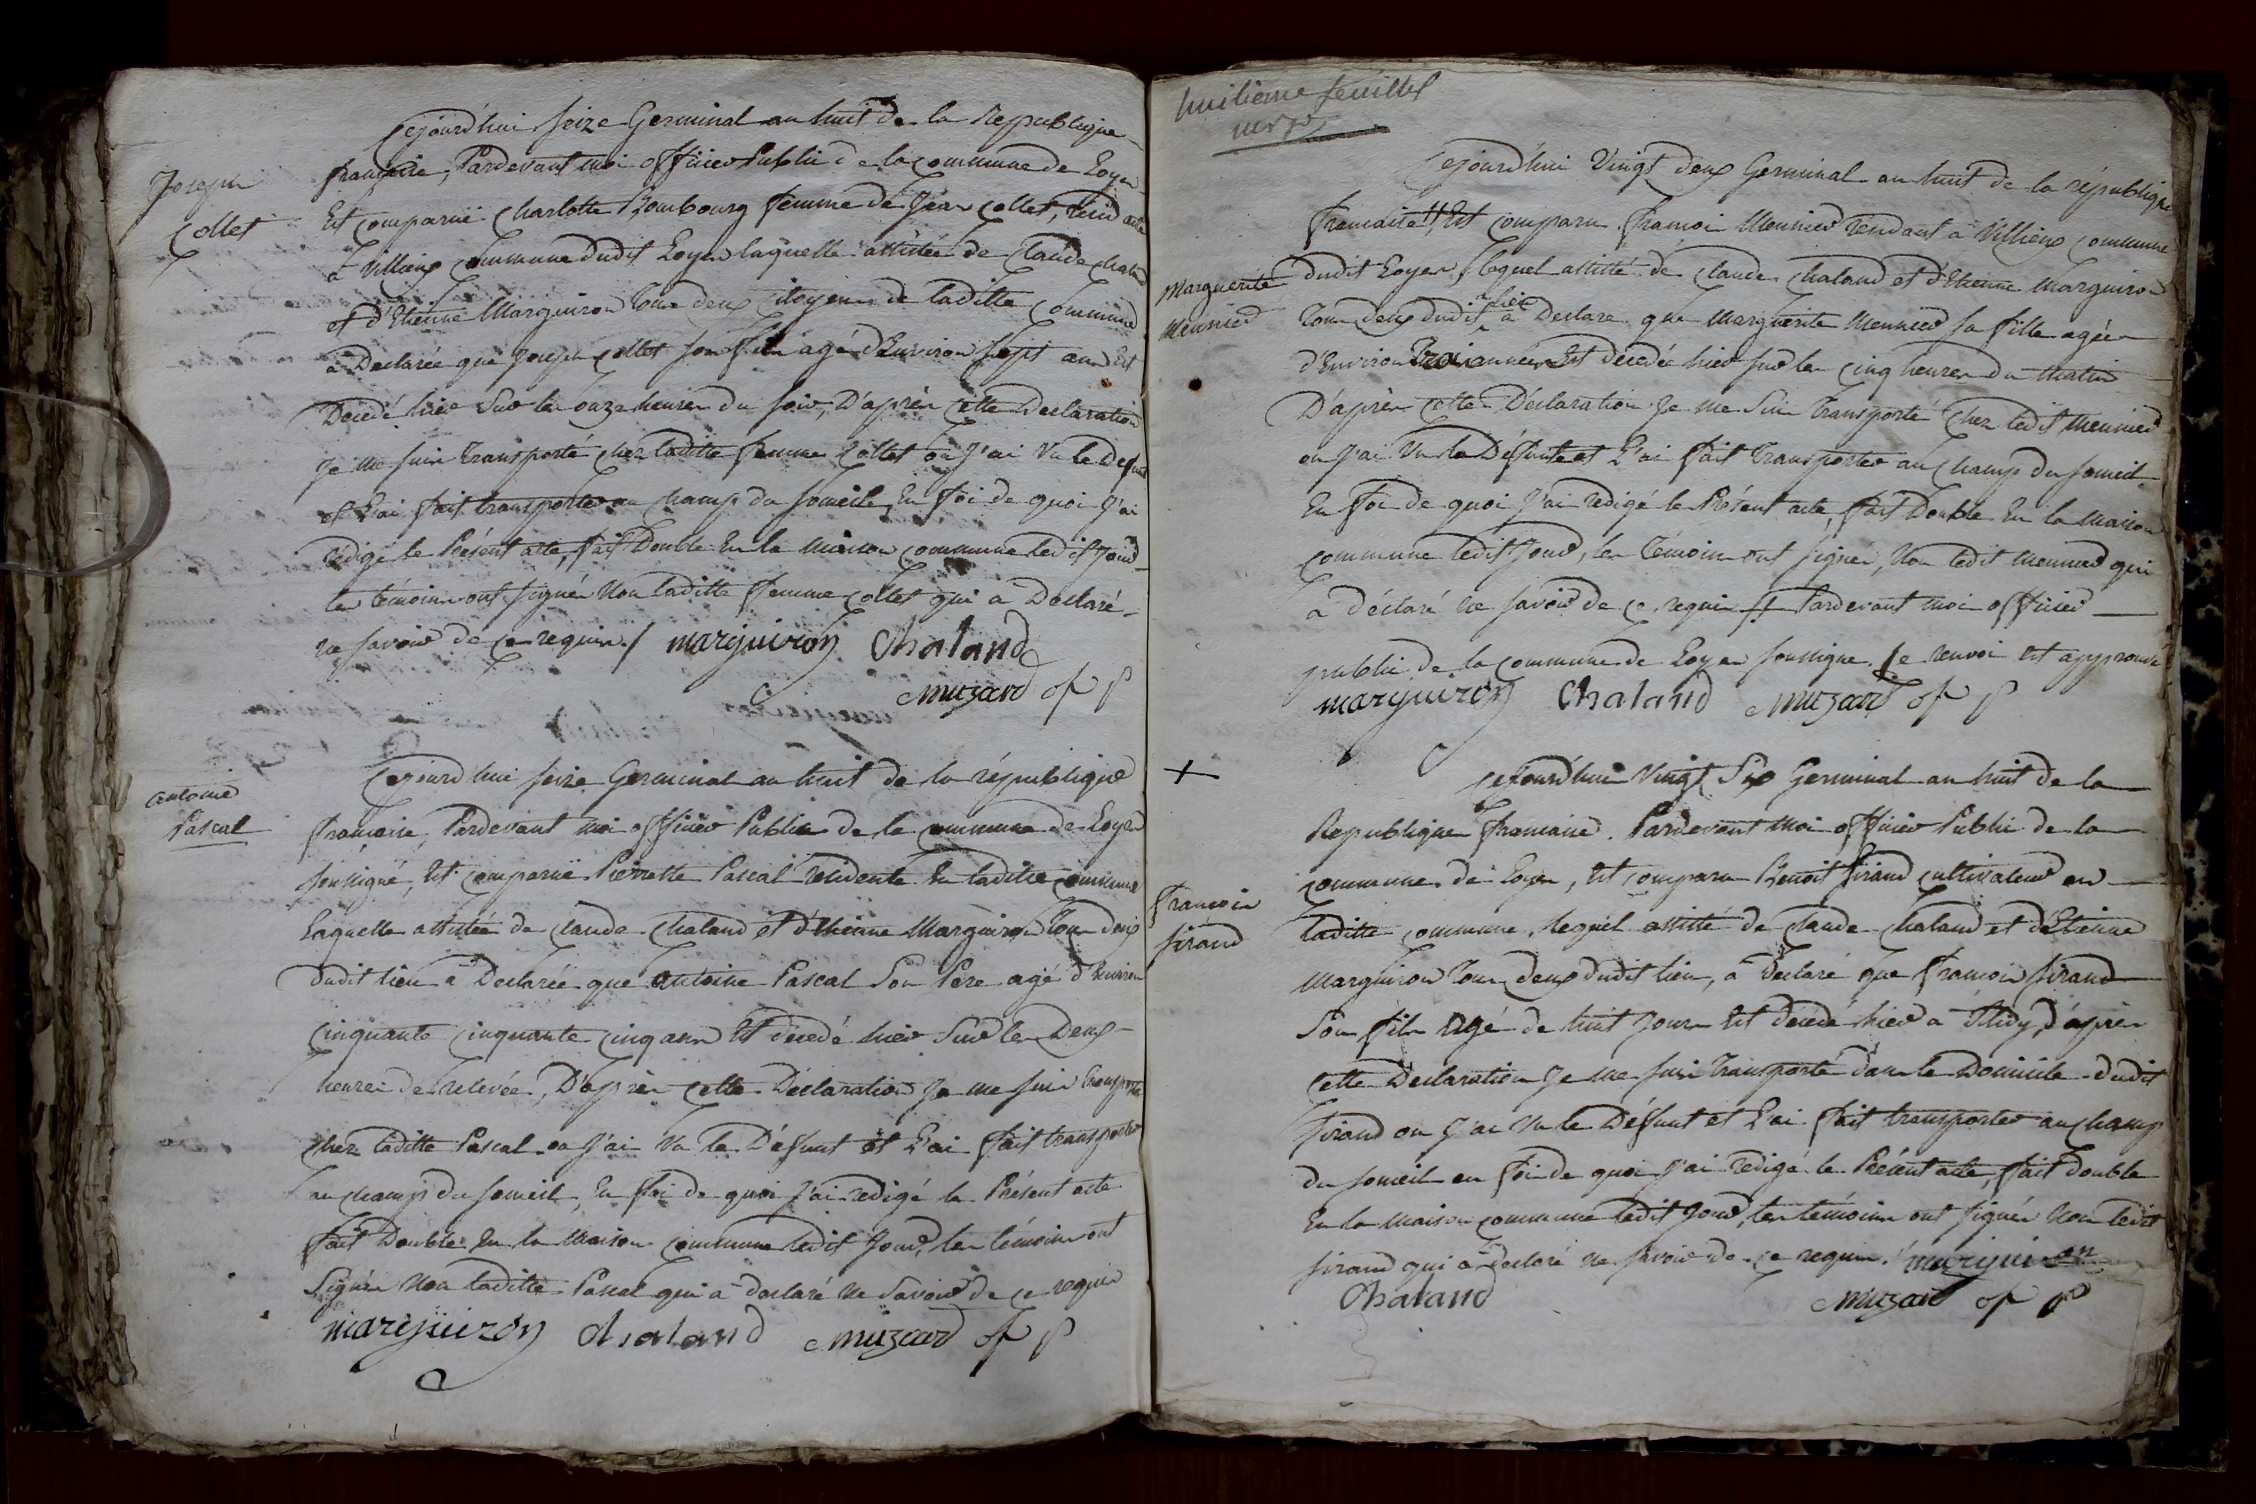 Joseph
Collet
Cejourd'hui seize Germinal an huit de la Republique
française, Pardevant moi officier Public de la commune de Loyes
Est comparuë Charlotte Bombourg femme de Jean Collet,
à Villieux commune dudit Loyes laquelle assistée de Claude Chaland
et d'Etienne Marguiron Tous deux citoyens de laditte Commune
à Declarée que Joseph Collet son fils agé d'Environ sept ans Est
Decedé hier Sur les onze heures du soir, D'après cette Declaration
Je me suis transporté chez laditte femme Collet où J'ai Vu le Defunt
et L'ai fait transporter au champ du someile, En foi de quoi J'ai
rédigé le Présent acte, fait Double En la maison commune ledit Jour
les témoins ont signés Non laditte femme Collet qui a Déclaré
ne savoir de ce requis ./ marguiron Chaland
muzard of p
antoine
Pascal
Cejourd'hui seize Germinal an huit de la république
française, Pardevant moi officier Public de la commune de Loyes
soussigné, Est comparuë Pierrette Pascal residente En laditte commune
Laquelle assistée de Claude Chaland et d'Etienne Marguiron Tous deux
dudit lieu à Declarée que antoine Pascal Son Pere agé d'Environ
cinquante cinquante cinq ans Est décedé hier Sur les Deux
heures de relevée, D'après cette Déclaration Je me suis transporté
chez laditte Pascal ou J'ai Vu le Défunt et L'ai fait transporter
au champ du someil, En foi de quoi J'ai redigé le Présent acte
fait Double En la Maison commune ledit Jour, les témoins ont
Signés Non laditte Pascal qui à declaré ne Savoir de ce requis
marguiron chaland muzard of p
huitième feuillet
verso
Marguerite
Meunier
Cejourd'hui Vingt deux Germinal an huit de la république
francaise // Est comparu francois Meunier résidant à Villieux commune
dudit Loyes, lequel assisté de Claude Chaland et d'Etienne Marguiron
lieu
Tous deux dudit à Declare que Marguerite Meunier sa fille agée
d'Environ Trois années Est décedée hier sur les cinq heures du Matin
D'après cette Déclaration Je me Suis Transporté Chez ledit Meunier
ou J'ai Vu la Défunte et L'ai fait Transporter au Champ du someil
En foi de quoi J'ai redigé le Présent acte, fait Double En la Maison
commune ledit Jour, les Témoins ont signer, Non ledit meunier qui
a déclaré ne savoir de ce requis // Pardevant moi officier
public de la commune de Loyes soussigne. Le renvoi Est approuvé
marguiron Chaland muzard of p
+
francois
sirand
Cejourd'hui Vingt Six Germinal an huit de la
Republique francaise. Pardevant Moi officier Public de la
commune de Loyes, Est comparu Benoit Sirand cultivateur en
laditte commune, lequel assisté de Claude Chaland et d'Etienne
Marguiron Tous deux dudit lieu, a Declaré que francois sirand
Son fils agé de huit Jours Est décédé hier a Midy, d'après
Cette Déclaration Je me suis Transporté dans le Domicile dudit
sirand ou J'ai Vu le Défunt et L'ai fait transporter au champ
du someil en foi de quoi J'ai rédigé le Présent acte, fait double
En la Maison commune ledit Jour, les témoins ont signés Non ledit
sirand qui a déclaré ne savoir de ce requis. marguiron
Chaland muzard of p